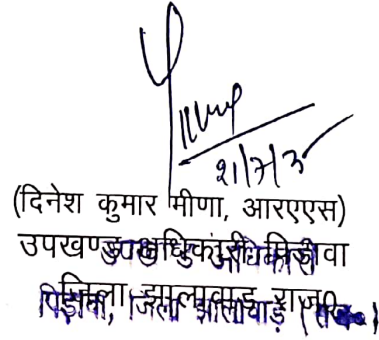 21/7/3
(दिनेश कुमार मीणा, आरएएस)
उपखण्ड अधिकारी पिड़ावा
जिला झालावाड़ राज०
उपखण्ड अधिकारी
पिड़ावा, जिला झालावाड़ (राज०)